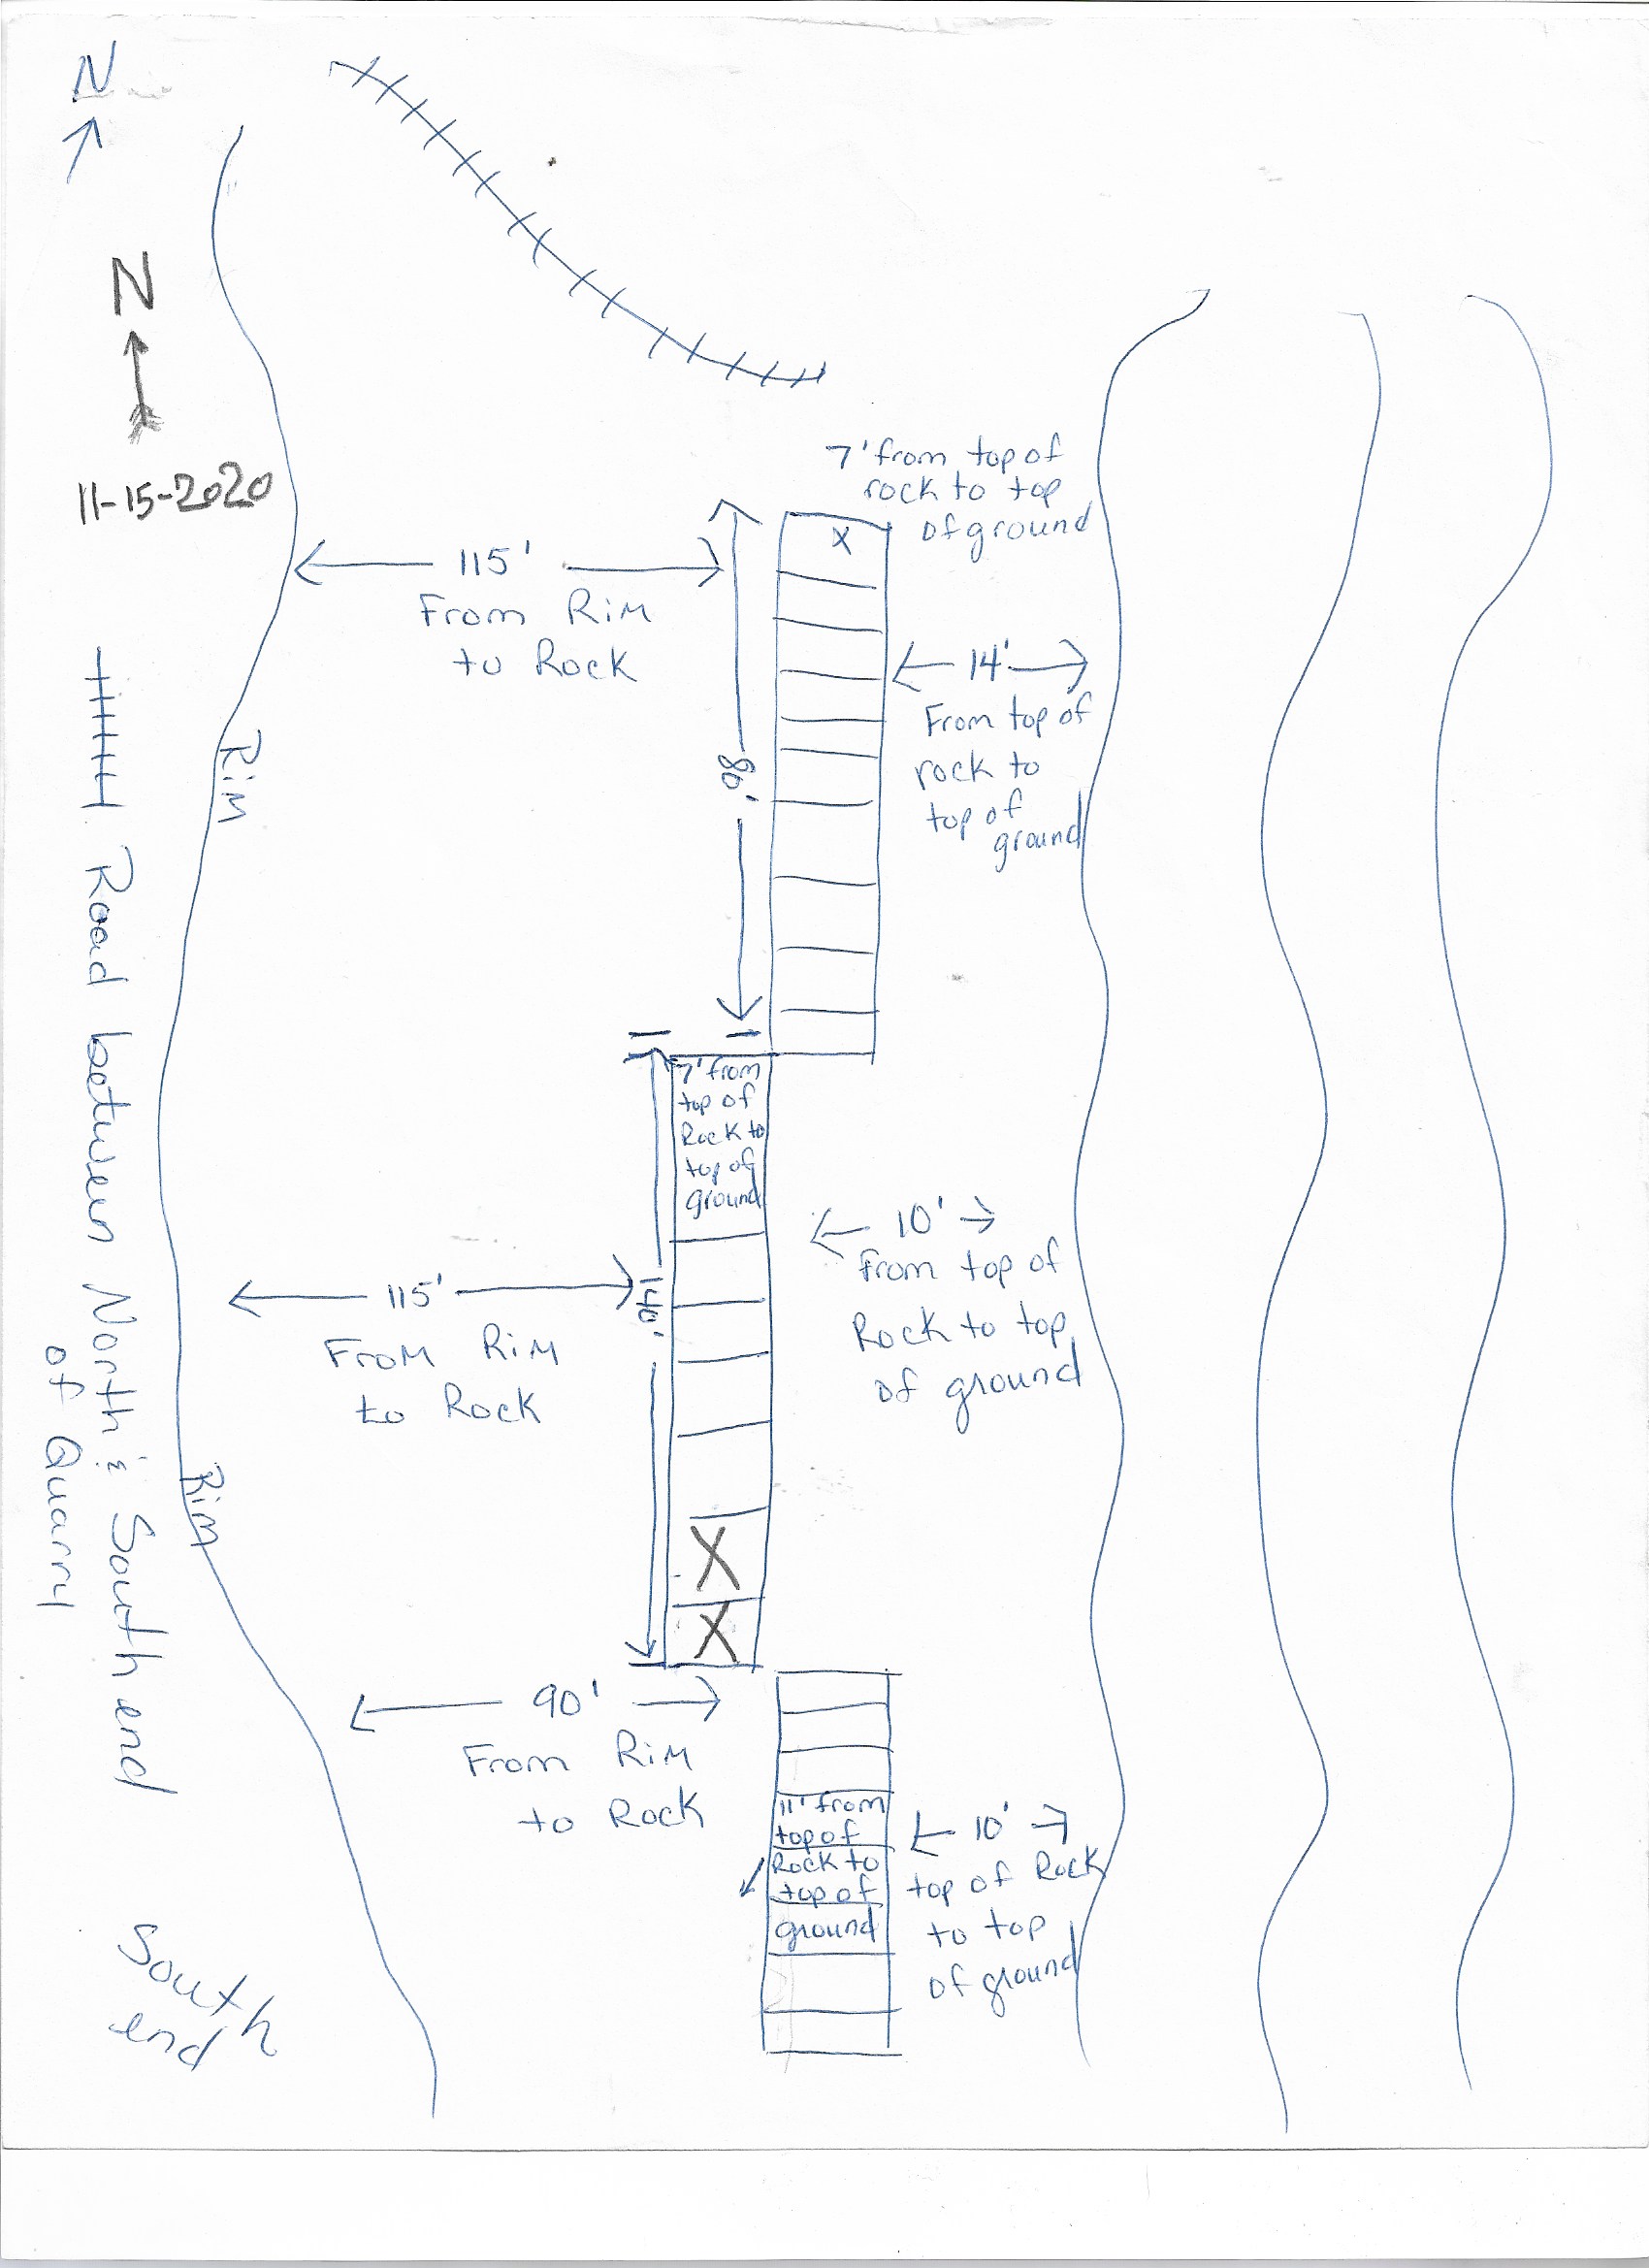 N
N
11-15-2020
Road between North & South end
of Quarry
Rim
Rim
South
end
115'
From Rim
to Rock
80'
X
7' from top of
rock to top
of ground
14'
From top of
rock to
top of
ground
7' from
top of
Rock to
top of
ground
140'
115'
From Rim
to Rock
10'
From top of
Rock to top
of ground
X
X
90'
From Rim
to Rock
11' from
top of
Rock to
top of
ground
10'
top of Rock
to top
of ground